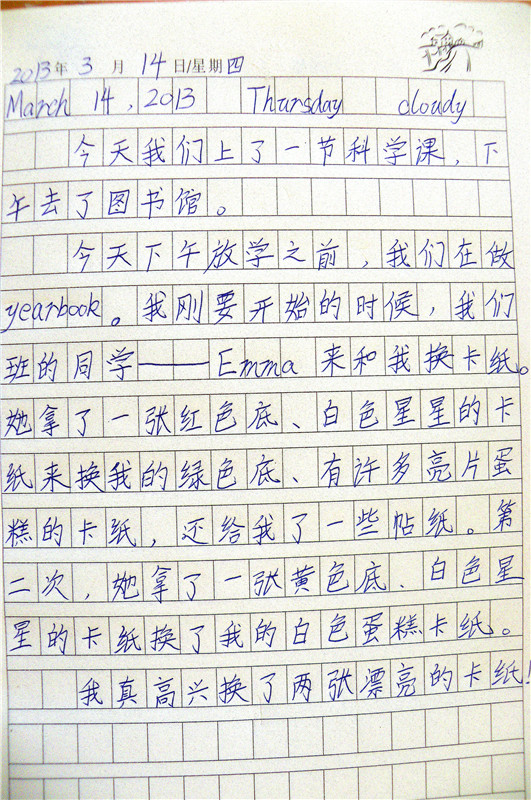 2013年 3 月 14 日/星期四
March 14, 2013 Thursday cloudy
今天我们上了一节科学课，下
午去了图书馆。
今天下午放学之前，我们在做
yearbook。我刚要开始的时候，我们
班的同学——Emma 来和我换卡纸。
她拿了一张红色底、白色星星的卡
纸来换我的绿色底、有许多亮片蛋
糕的卡纸，还给我了一些帖纸。第
二次，她拿了一张黄色底、白色星
星的卡纸换了我的白色蛋糕卡纸。
我真高兴换了两张漂亮的卡纸！